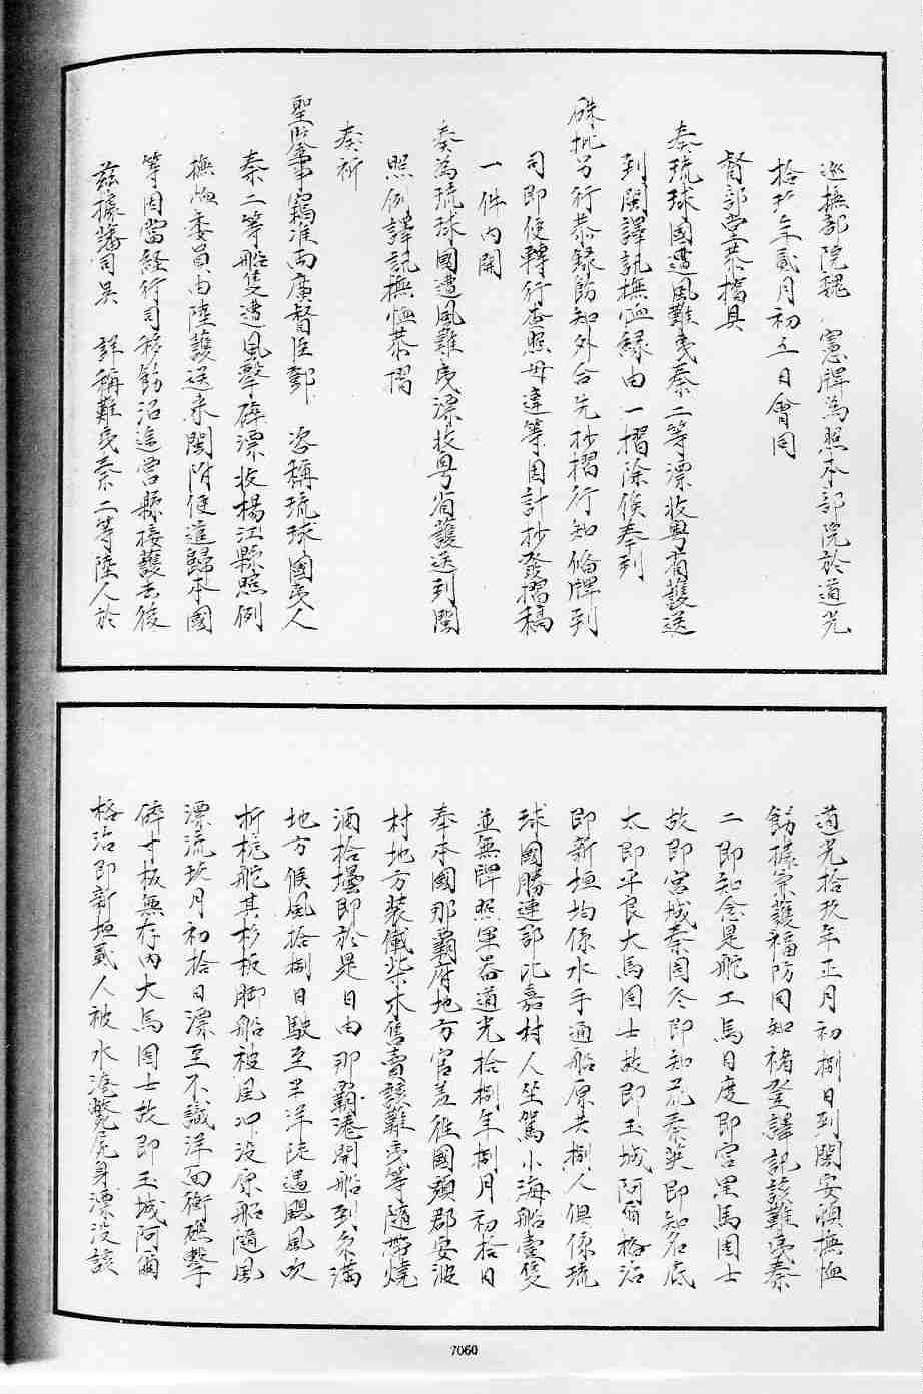 巡撫部院魏　憲牌為照本部院於道光
拾玖年貳月初五日會同
督部堂恭摺具
奏琉球國遭風難夷秦二等漂收粵省護送
到閩譯訊撫恤緣由一摺除俟奉到
硃批另行恭錄飭知外合先抄摺行知備牌到
司即便轉行查照毋違等因計抄發摺稿
一件內開
奏為琉球國遭風難夷漂收粵省護送到閩
照例譯訊撫恤恭摺
奏祈
聖鑒事竊准兩廣督臣鄧　咨稱琉球國夷人
秦二等船隻遭風擊碎漂收楊江縣照例
撫恤委員由陸護送來閩附便進歸本國
等因當經行司移飭沿途營縣接護去後
茲據藩司吳　詳稱難夷秦二等陸人於
道光拾玖年正月初捌日到閩安頓撫恤
飭據宗護福防同知褚登譯訊該難夷秦
二即知念是舵工馬日度即宮里馬國士
故即宮城秦周冬即知花秦英即知名底
太即平良大馬國士故即玉城阿爾格沿
即新垣均係水手通船原共捌人俱係琉
球國勝連郡比嘉村人坐駕小海船壹隻
並無牌照軍器道光拾捌年捌月初拾日
奉本國那霸府地方官差往國頭郡安波
村地方裝儎柴木售賣該難夷等隨帶燒
酒拾壜即於是日由那霸港開船到奈滿
地方候風拾捌日駛至半洋陡遇颶風吹
折桅舵其杉板脚船被風冲沒原船隨風
漂流玖月初拾日漂至不識洋面衝礁擊
碎寸板無存內大馬國士故即玉城阿爾
格沿即新垣貳人被水淹斃屍身漂沒該
7060